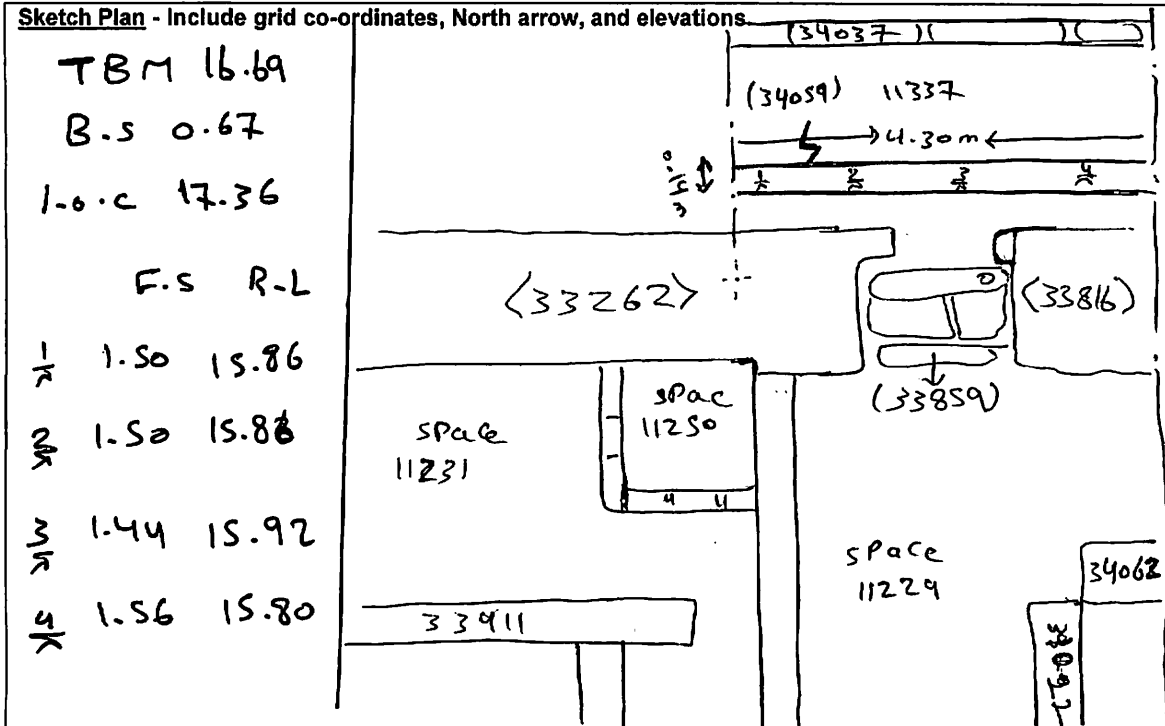 Sketch Plan - Include grid co-ordinates, North arrow, and elevations
TBM 16.69
B.S 0.67
I.o.c 17.36
F.S R.L
1 1.50 15.86
2 1.50 15.86
3 1.44 15.92
4 1.56 15.80
(34037)
(34059) 11337
4.30m
1 2 3 4
<33262>
(33816)
(33859)
space
11231
spac
11250
space
11229
33911
34062